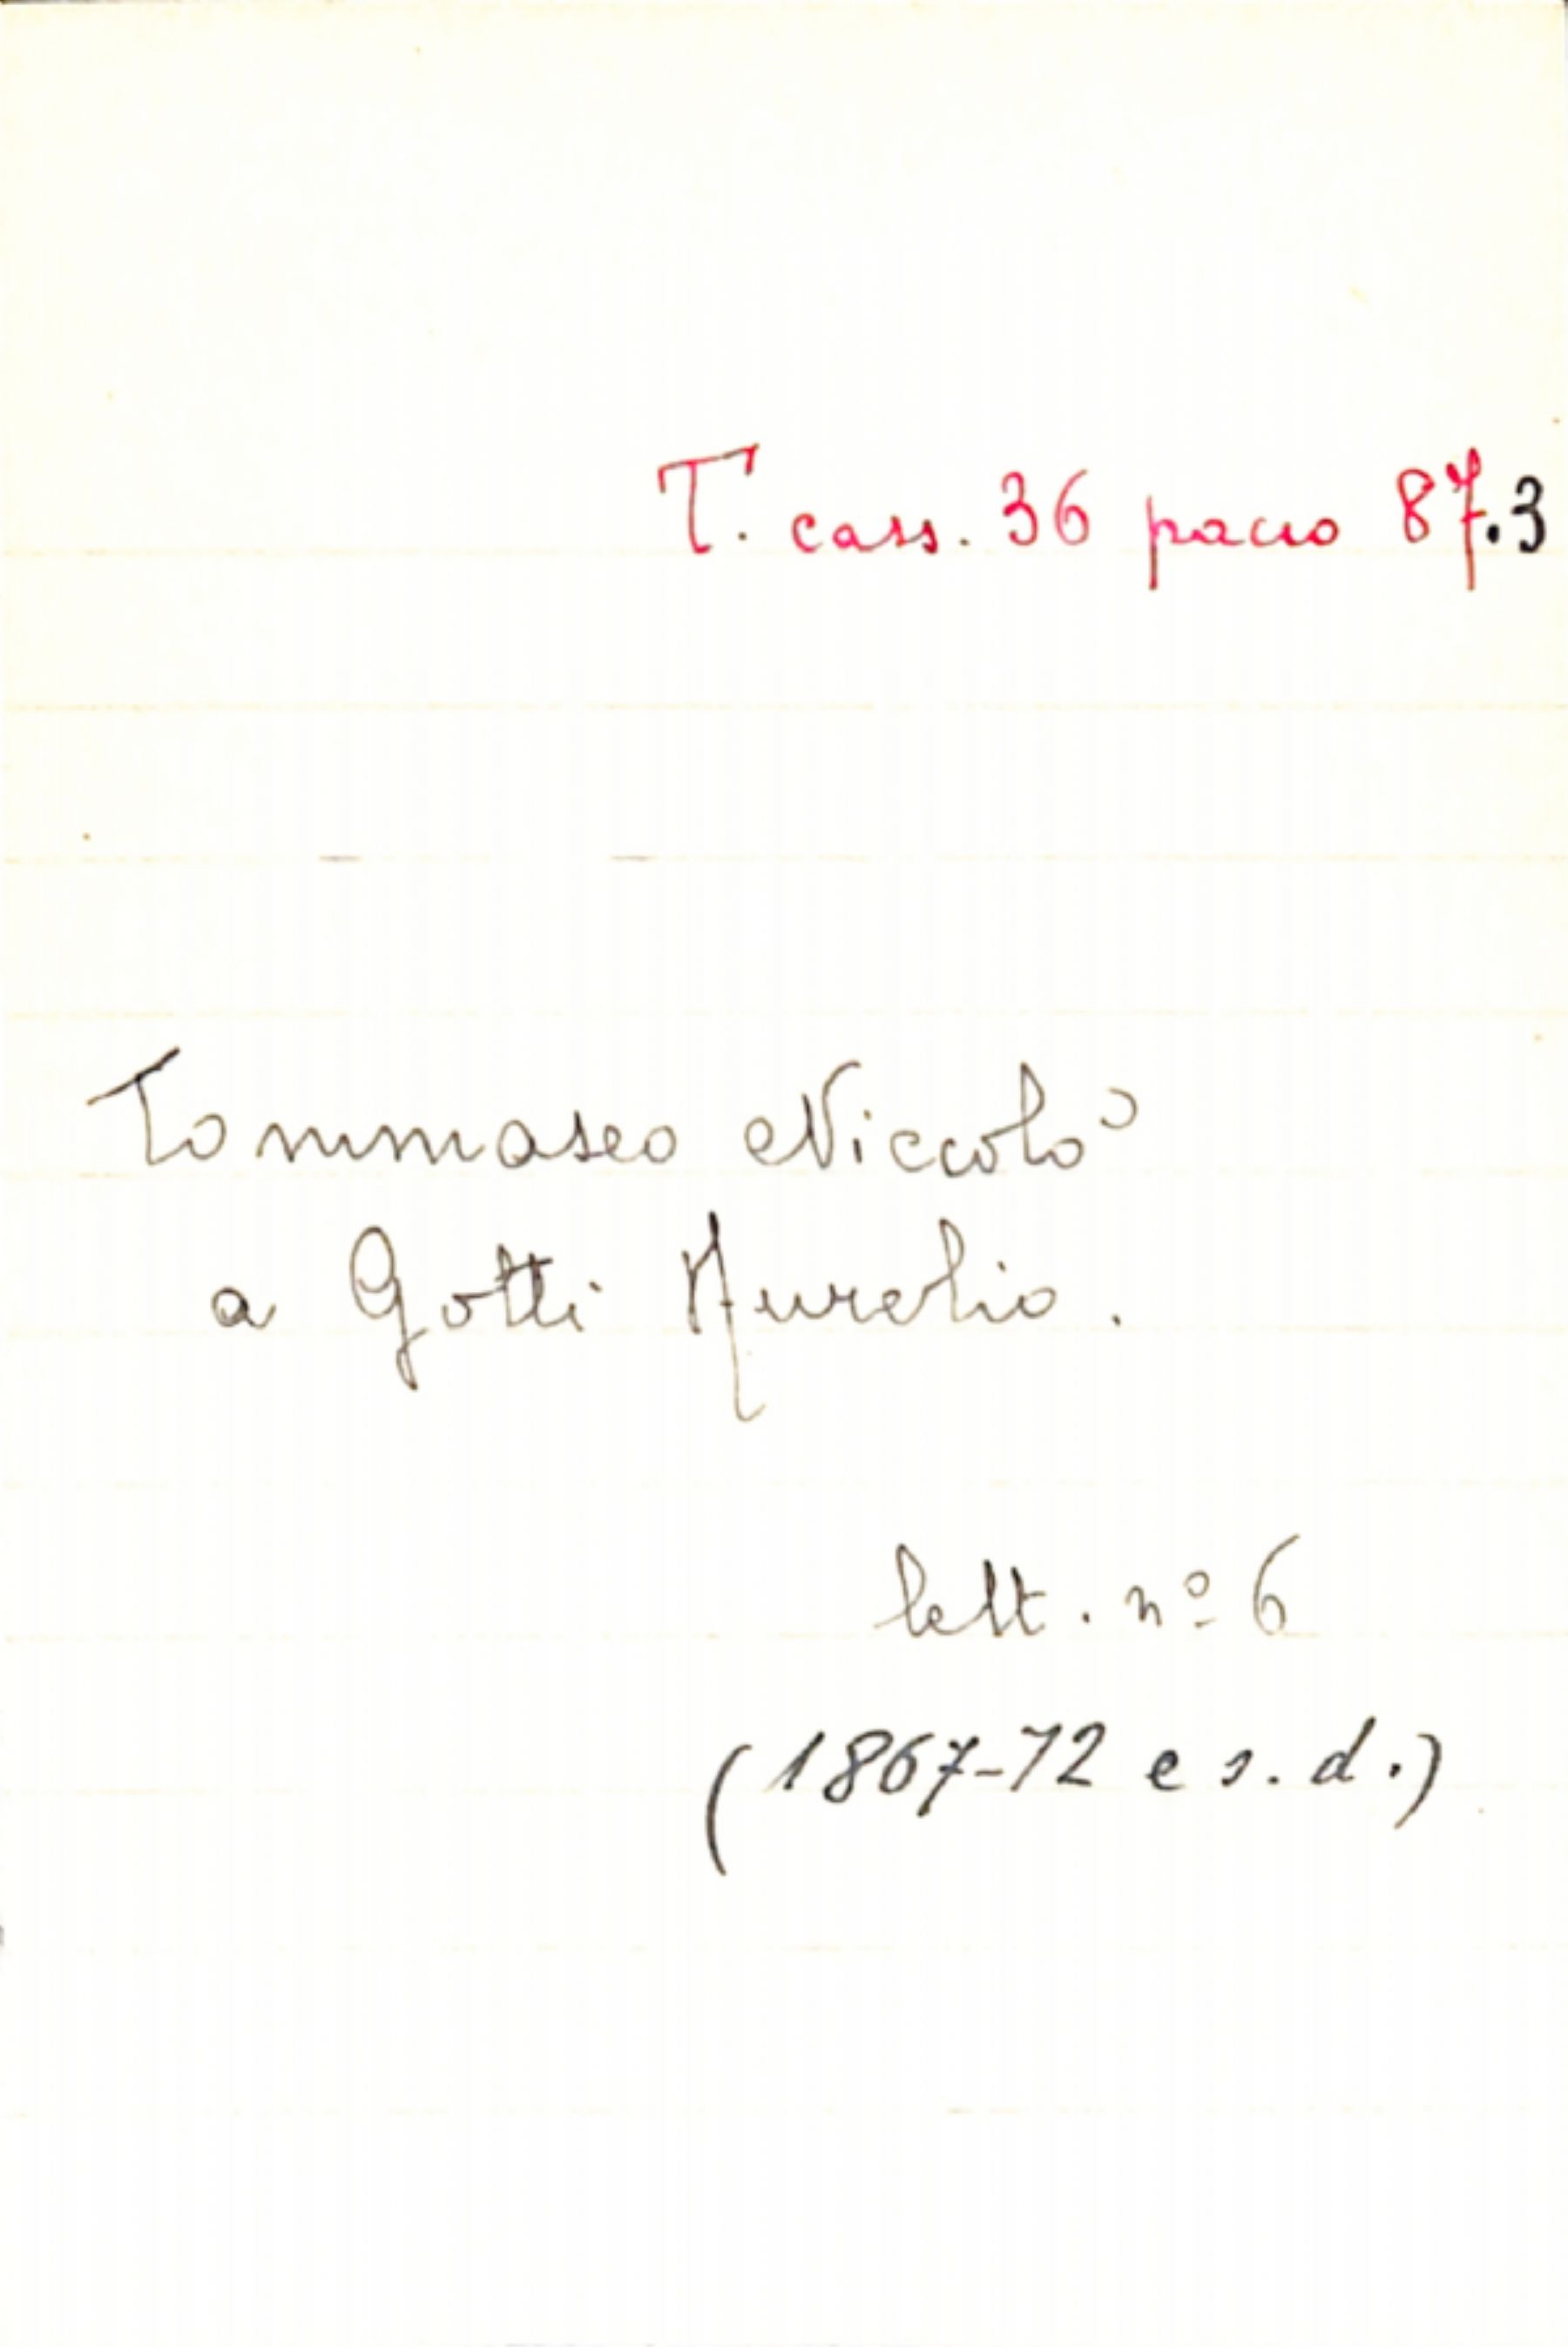 T. cass. 36 pacco 87.3
Tommaseo Niccolò
a Gotti Aurelio.
lett. nº 6
(1867-72 e s. d.)